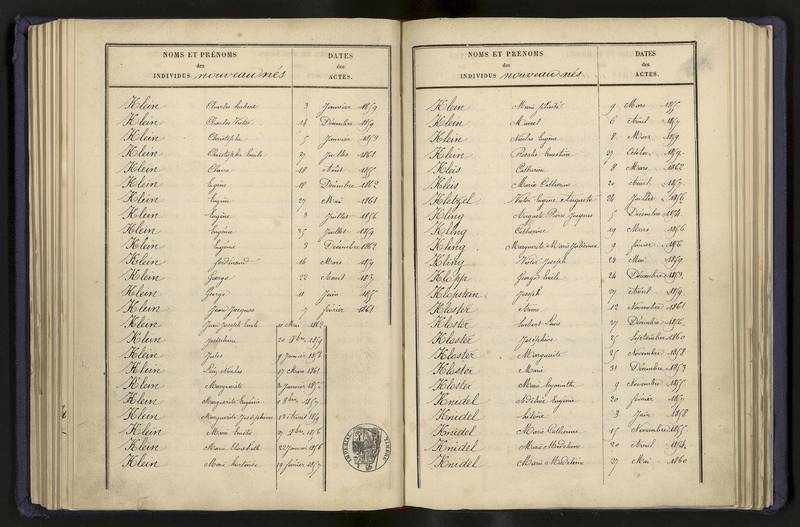 NOMS ET PRÉNOMS
des
INDIVIDUS nouveau nés
DATES
des
ACTES.
Klein Charles hubert 3 Janvier 1859
Klein Charles Victor 14 Décembre 1859
Klein Christophe 5 Janvier 1853
Klein Christophe Emile 27 Juillet 1861
Klein Claire 18 Août 1855
Klein Eugène 18 Décembre 1862
Klein Eugène 27 Mai 1861
Klein Eugène 3 Juillet 1856
Klein Eugène 25 Juillet 1859
Klein Eugénie 3 Décembre 1862
Klein ferdinand 14 Mars
Klein George 22 Août 1857
Klein George 11 Juin 1855
Klein Jean Jacques 7 février 1861
Klein Jean Joseph Emile 11 Mai 1862
Klein Joséphine 20 1859
Klein Jules 9 Janvier 1858
Klein Nicolas 17 Mars 1861
Klein Marguerite Janvier
Klein Marguerite Eugénie
Klein Marguerite Joséphine Avril 1859
Klein Marie 1856
Klein Marie Elisabeth 22 Janvier 1856
Klein Marie hortense février 1857
NOMS ET PRÉNOMS
des
INDIVIDUS nouveau nés.
DATES
des
ACTES.
Klein Marie 9 Mars 1855
Klein Marcel 6 Août 1857
Klein Nicolas Eugène 8 Mars 1859
Klein Rosalie Ernestine 27 Octobre 1859
Kleis Catherine 8 Mars 1862
Kleis Marie Catherine 20 Août 1857
Kletzel Victor Eugène Auguste 24 Juillet 1856
Kling Auguste Pierre Jacques 5 Décembre 1854
Kling Catherine 19 Mars 1856
Kling Marguerite Marie février 1856
Kling Victor Joseph 23 Mai 1859
Klopp George Emile 24 Décembre 1853
Klopstein Joseph 27 Avril 1859
Kloster 12 Novembre 1861
Kloster hubert Louis 27 Décembre 1856
Kloster Joséphine 25 Septembre 1860
Kloster Marguerite 25 Novembre 1858
Kloster Marie 31 Décembre 1853
Kloster Marie hyacinthe 9 Novembre 1855
Knidel Eugénie 20 février 1857
Knidel hélène 3 Juin 1858
Knidel Marie Catherine 15 Novembre 1855
Knidel Marie Madeleine 20 Avril 1854
Knidel Marie Madeleine 27 Mai 1860